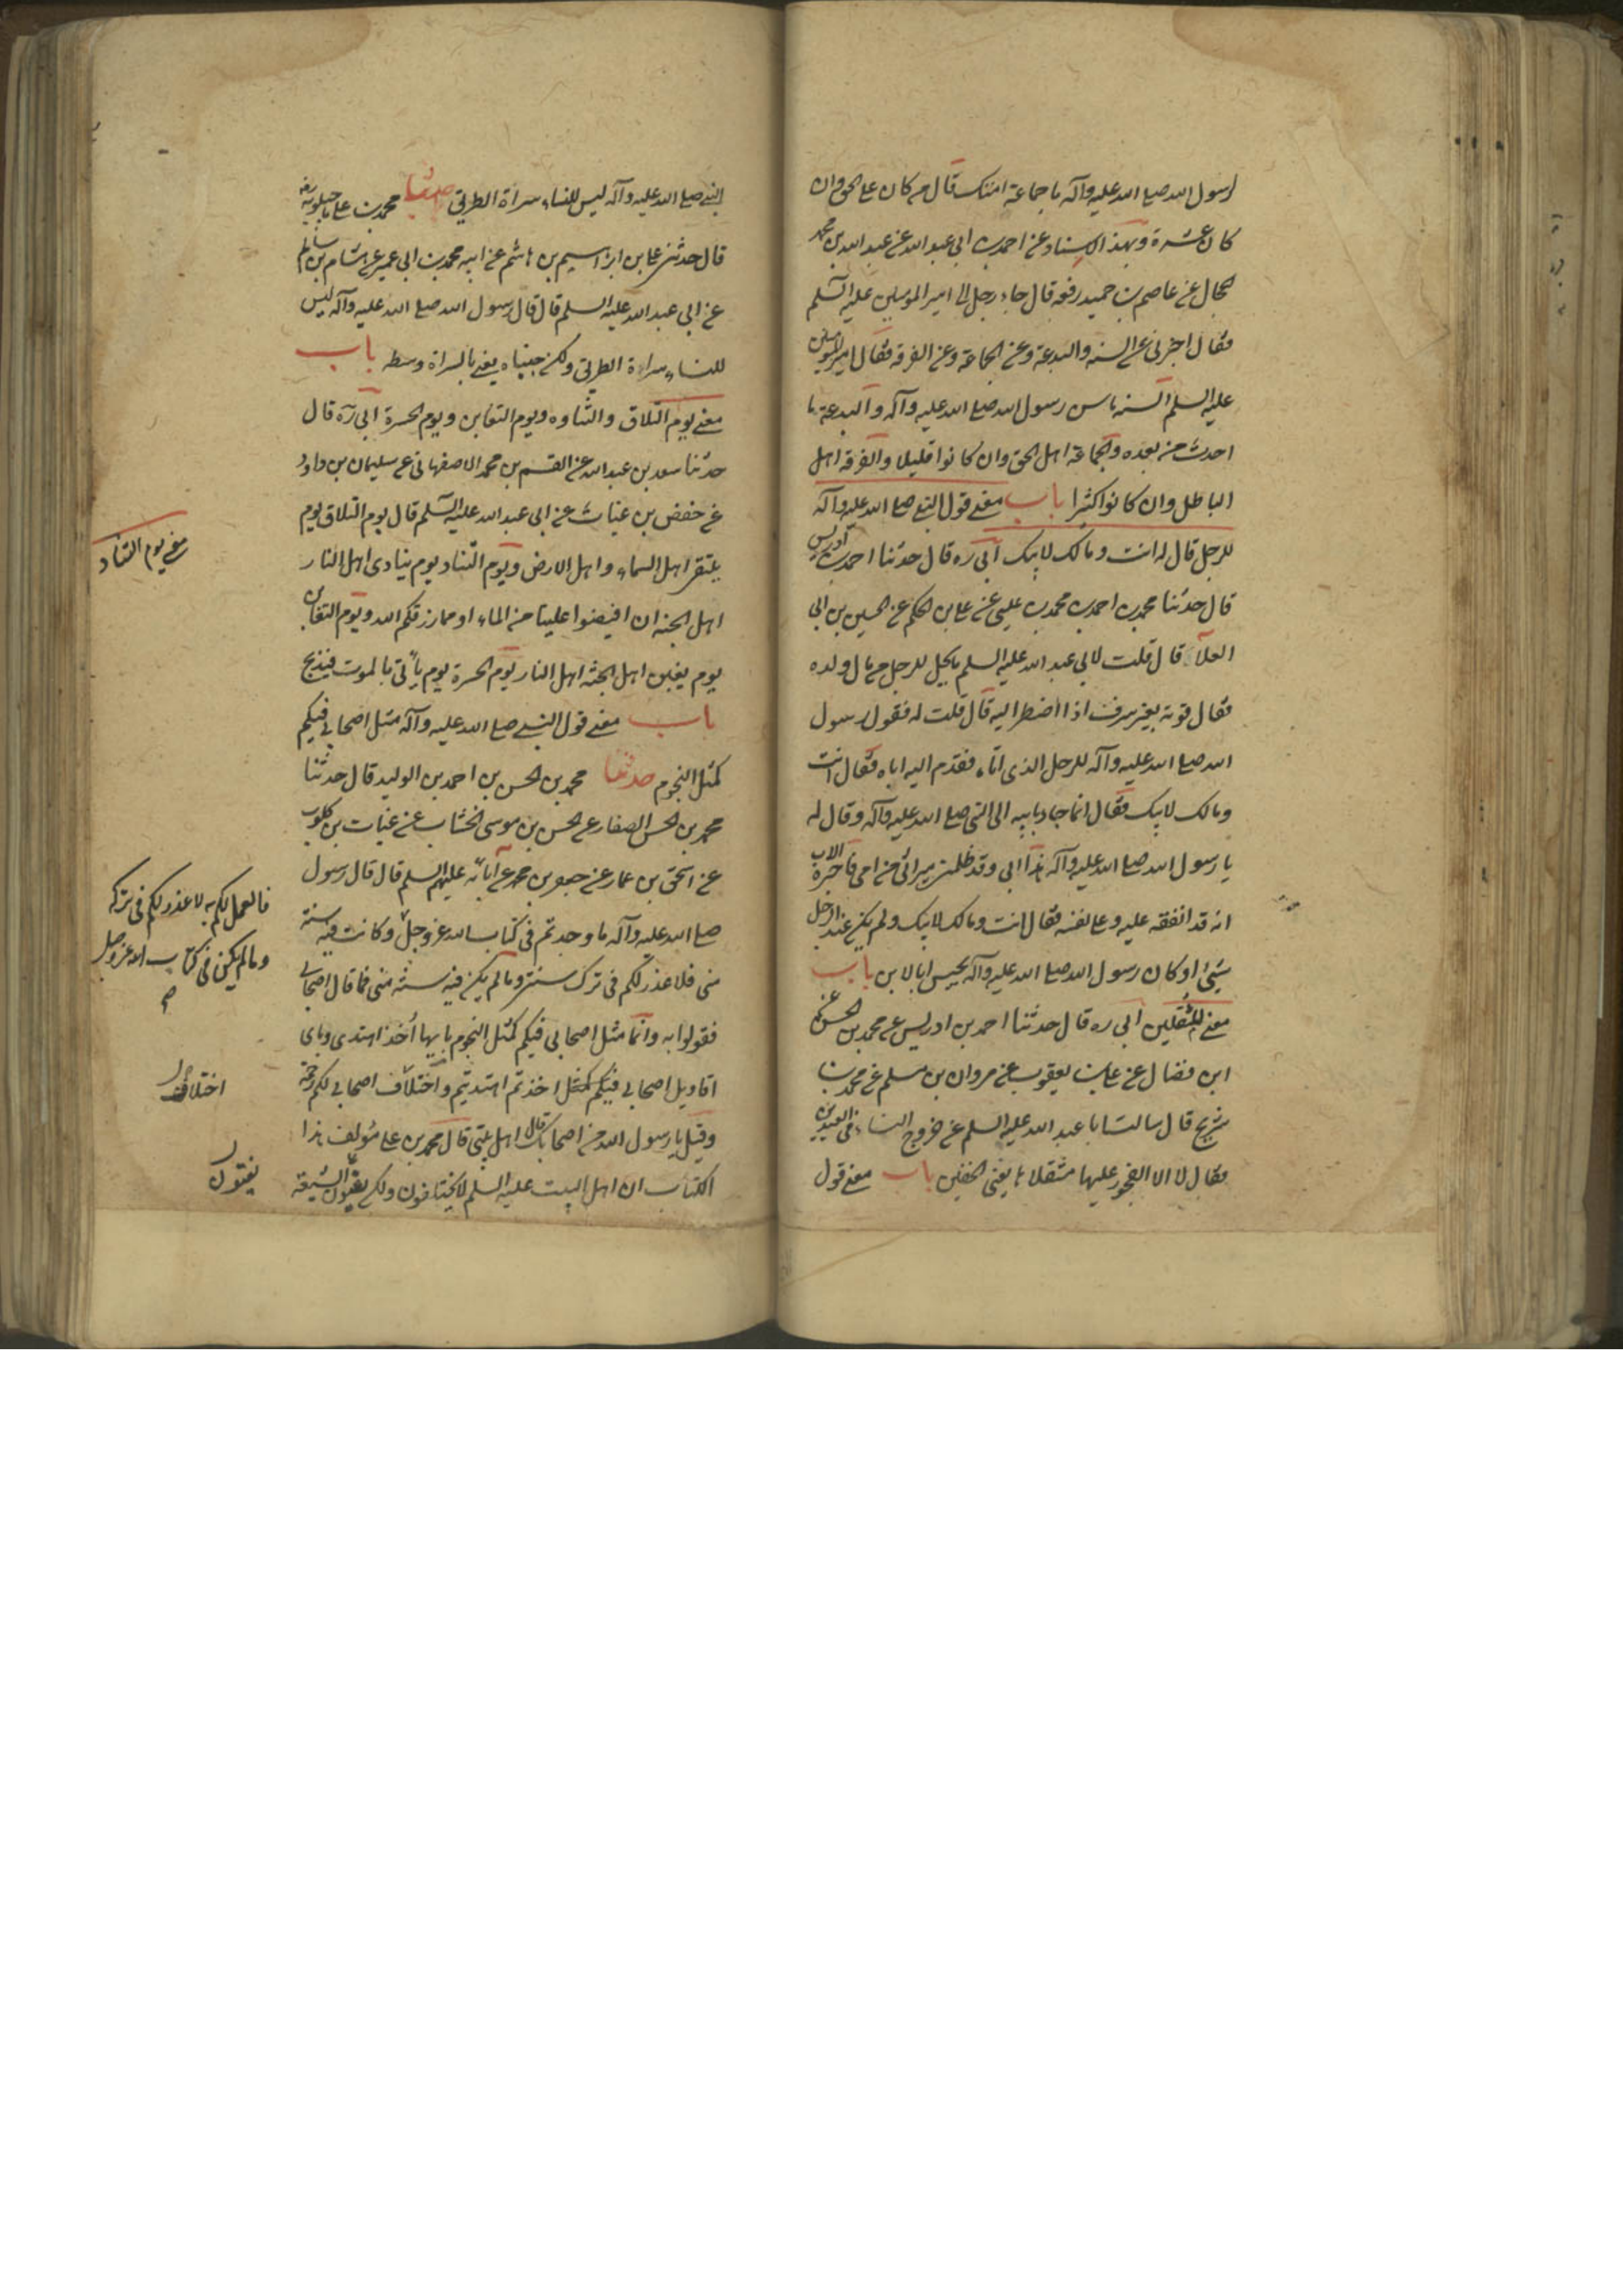 لرسول الله صلى الله عليه وآله ما جماعة امتك قال من كان على الحق وان
كان عشرة وبهذا الاسناد عن احمد بن ابى عبد الله عن عبد الله بن محمد
الحجال عن عاصم بن حميد رفعه قال جاء رجل الى امير المؤمنين عليه السلم
فقال اخبرنى عن السنه والبدعة وعن الجماعة وعن الفرقه فقال امير المؤمنين
عليه السلم السنه ما سن رسول الله صلى الله عليه وآله والبدعة ما
احدث من بعده والجماعة اهل الحق وان كانوا قليلا والفرقه اهل
الباطل وان كانوا كثيرا باب معنى قول النبى صلى الله عليه وآله
للرجل قال له انت ومالك لابيك ابى ره قال حدثنا احمد بن ادريس
قال حدثنا محمد بن احمد بن محمد بن عيسى عن على بن الحكم عن الحسين بن ابى
العلآ قال قلت لابى عبد الله عليه السلم ما يحل للرجل من مال ولده
فقال قوته بغير سرف اذا اضطر اليه قال قلت له فقول رسول
الله صلى الله عليه وآله للرجل الذى اتاه فقدم اليه اباه فقال انت
ومالك لابيك فقال انما جاء بابيه الى النبى صلى الله عليه وآله وقال له
يا رسول الله صلى الله عليه وآله هذا ابى وقد ظلمنى ميراثى من امى فاخبره الاب
انه قد انفقه عليه وعلى نفسه فقال انت ومالك لابيك ولم يكن عند الرجل
شىء او كان رسول الله صلى الله عليه وآله يحبس ابا لابن باب
معنى المنقلين ابى ره قال حدثنا احمد بن ادريس عن محمد بن الحسن عن
ابن فضال عن على بن يعقوب عن مروان بن مسلم عن محمد بن
شريح قال سالت ابا عبد الله عليه السلم عن خروج النساء فى العيدين
فقال لا الا العجوز عليها منقلاها يعنى الخفين باب معنى قول
النبى صلى الله عليه وآله ليس للنساء سراة الطريق حدثنا محمد بن على ماجيلويه رضه
قال حدثنى على بن ابراهيم بن هاشم عن ابيه محمد بن ابى عمير عن هشام بن سالم
عن ابى عبد الله عليه السلم قال قال رسول الله صلى الله عليه وآله ليس
للنساء سراة الطريق ولكن جنباه يعنى بالسراة وسط باب
معنى يوم التلاق والتناد ويوم التغابن ويوم الحسرة ابى ره قال
حدثنا سعد بن عبد الله عن القسم بن محمد الاصفهانى عن سليمان بن داود
عن حفص بن غياث عن ابى عبد الله عليه السلم قال يوم التلاق يوم
يلتقى اهل السماء واهل الارض ويوم التناد يوم ينادى اهل النار
معنى يوم التناد
اهل الجنه ان افيضوا علينا من الماء او مما رزقكم الله ويوم التغابن
يوم يغبن اهل الجنه اهل النار يوم الحسرة يوم يأتى بالموت فيذبح
باب معنى قول النبى صلى الله عليه وآله مثل اصحابى فيكم
كمثل النجوم حدثنا محمد بن الحسن بن احمد بن الوليد قال حدثنا
محمد بن الحسن الصفار عن الحسن بن موسى الخشاب عن غياث بن كلوب
عن اسحق بن عمار عن جعفر بن محمد عن آبائه عليهم السلم قال قال رسول
صلى الله عليه وآله ما وجدتم فى كتاب الله عز وجل وكانت فيه سنة
فالعمل لكم به لا عذر لكم فى تركه
وما لم يكن فى كتاب الله عز وجل
منى فلا عذر لكم فى ترك سنتى وما لم يكن فيه سنة منى فما قال اصحابى
فقولوا به وانما مثل اصحابى فيكم كمثل النجوم بايها اخذ اهتدى وباى
اقاويل اصحابى فيكم اخذتم اهتديتم واختلاف اصحابى لكم رحمة
اختلاف
وقيل يا رسول الله من اصحابك قال اهل بيتى قال محمد بن على مؤلف هذا
الكتاب ان اهل البيت عليه السلم لا يختلفون ولكن يفتون الشيعة
يفتون